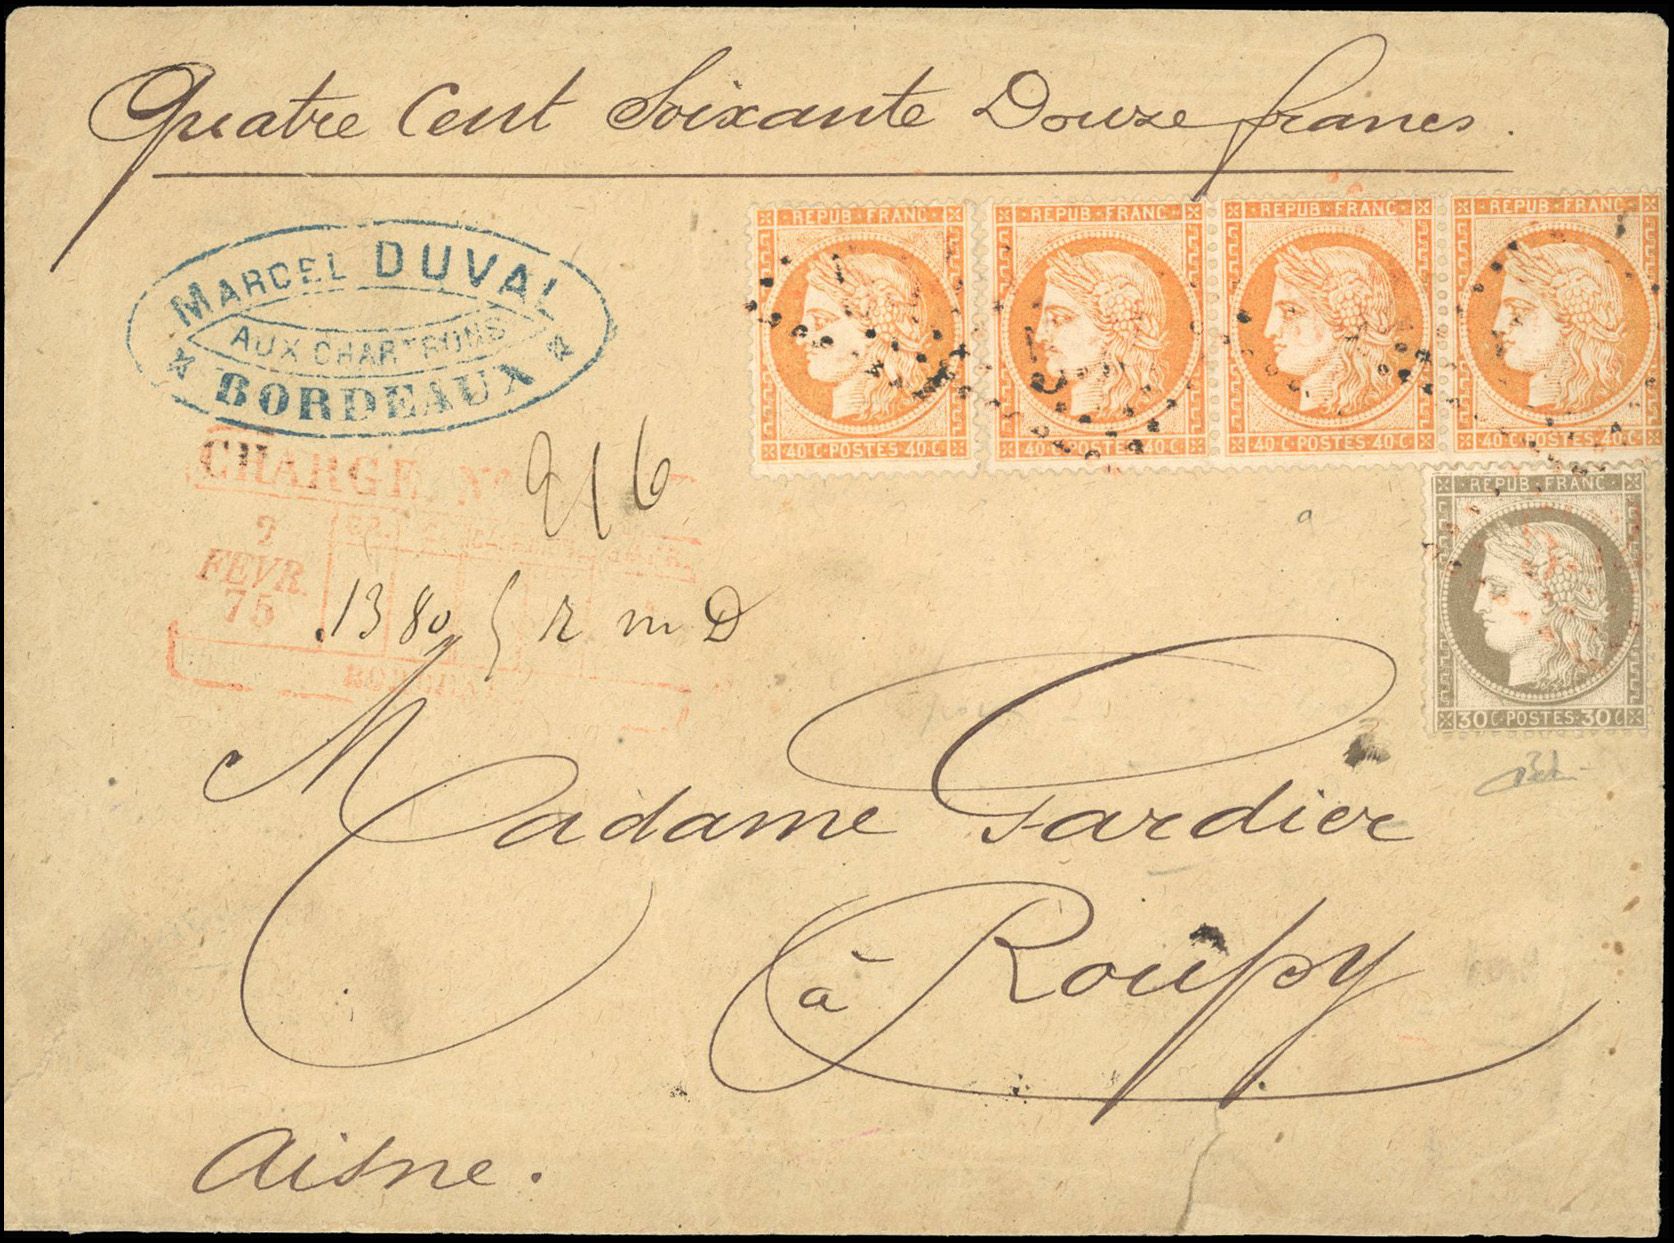 Quatre Cent Soixante Douze francs.
MARCEL DUVAL
AUX CHARTRONS
BORDEAUX
REPUB·FRANC
40·C·POSTES·40·C
REPUB·FRANC
40·C·POSTES·40·C
REPUB·FRANC
40·C·POSTES·40·C
REPUB·FRANC
40·C·POSTES·40·C
CHARGE N° 916
2
FEVR.
75
BORDEAUX
1380
REPUB·FRANC
30·C·POSTES·30·C
Madame Gardier
à Roupy
Aisne.